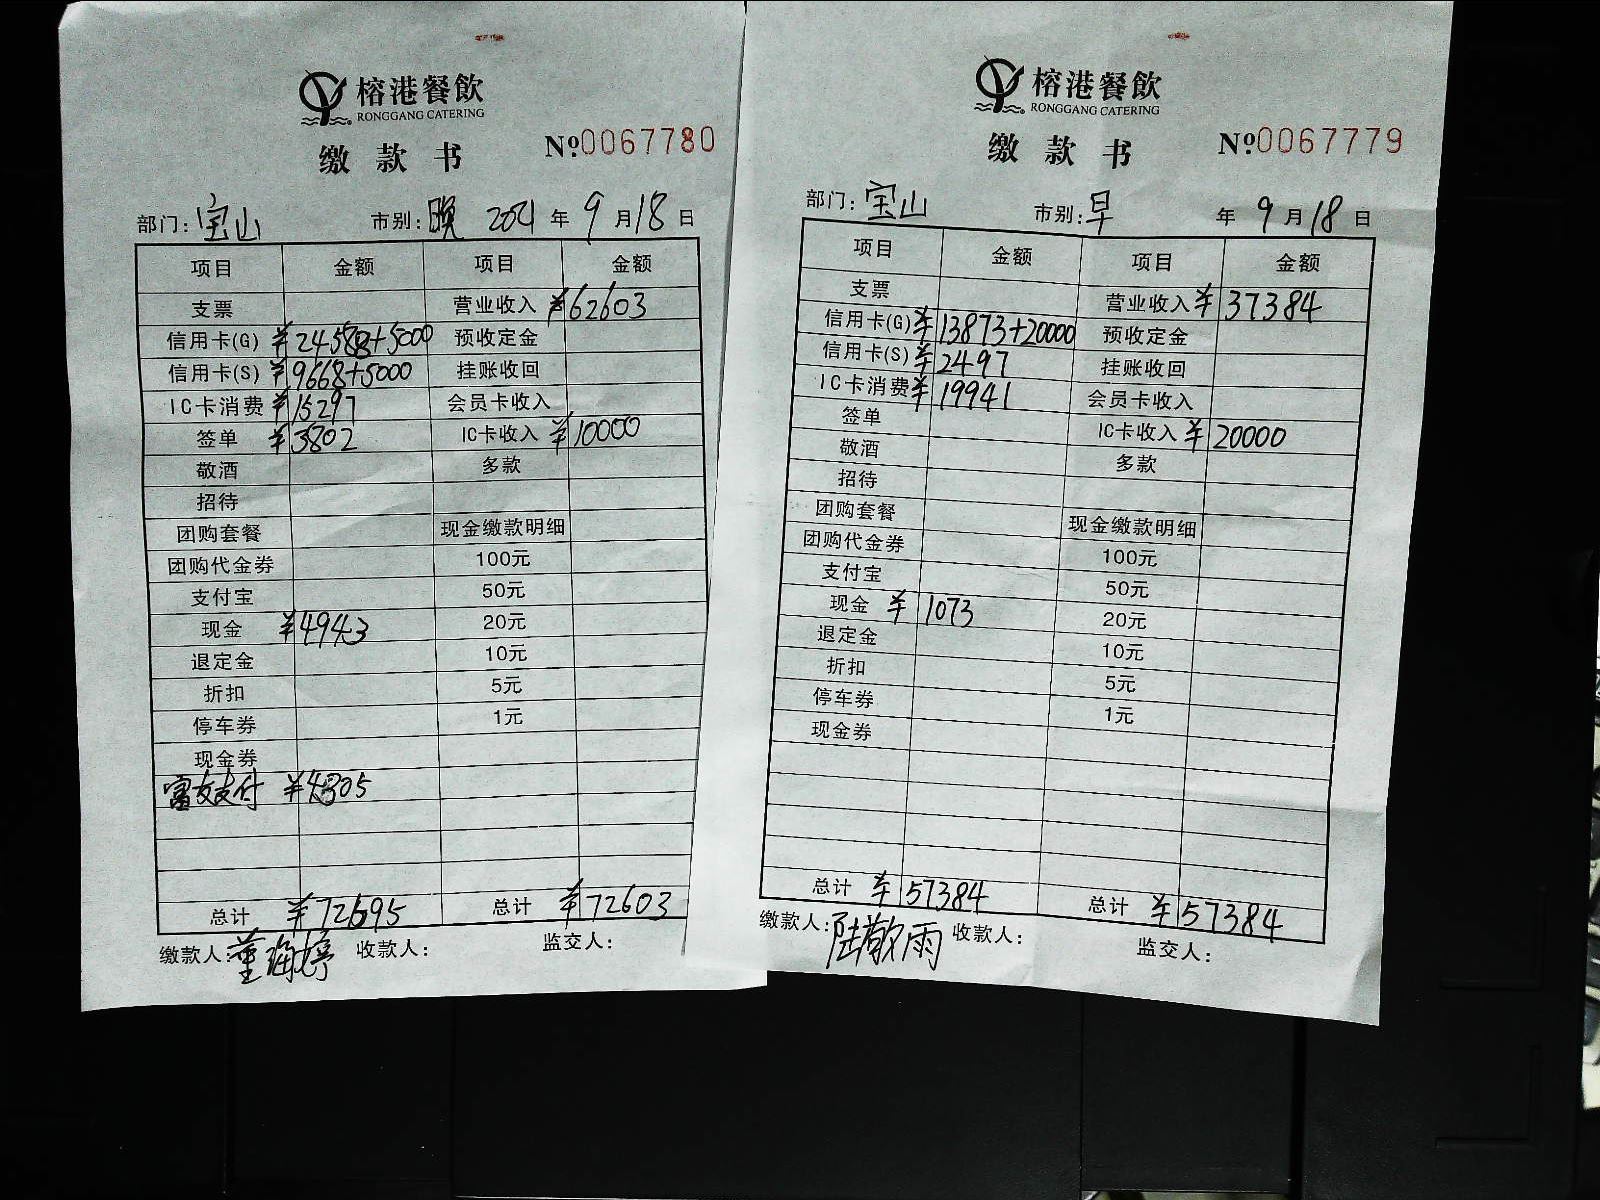 榕港餐飲
RONGGANG CATERING
缴款书
Nº0067780
部门:宝山 市别:晚 2021年9月18日
项目 金额 项目 金额
支票 营业收入 ¥62603
信用卡(G) ¥24588+5000 预收定金
信用卡(S) ¥9668+5000 挂账收回
IC卡消费 ¥15297 会员卡收入
签单 ¥3802 IC卡收入 ¥10000
敬酒 多款
招待
团购套餐 现金缴款明细
团购代金券 100元
支付宝 50元
现金 ¥4943 20元
退定金 10元
折扣 5元
停车券 1元
现金券
支付 ¥4305
总计 ¥72695 总计 ¥72603
缴款人:董海婷 收款人: 监交人:
榕港餐飲
RONGGANG CATERING
缴款书
Nº0067779
部门:宝山 市别:早 年9月18日
项目 金额 项目 金额
支票 营业收入 ¥37384
信用卡(G) ¥13873+20000 预收定金
信用卡(S) ¥2497 挂账收回
IC卡消费 ¥19941 会员卡收入
签单 IC卡收入 ¥20000
敬酒 多款
招待
团购套餐 现金缴款明细
团购代金券 100元
支付宝 50元
现金 ¥1073 20元
退定金 10元
折扣 5元
停车券 1元
现金券
总计 ¥57384 总计 ¥57384
缴款人:陆歆雨 收款人: 监交人: